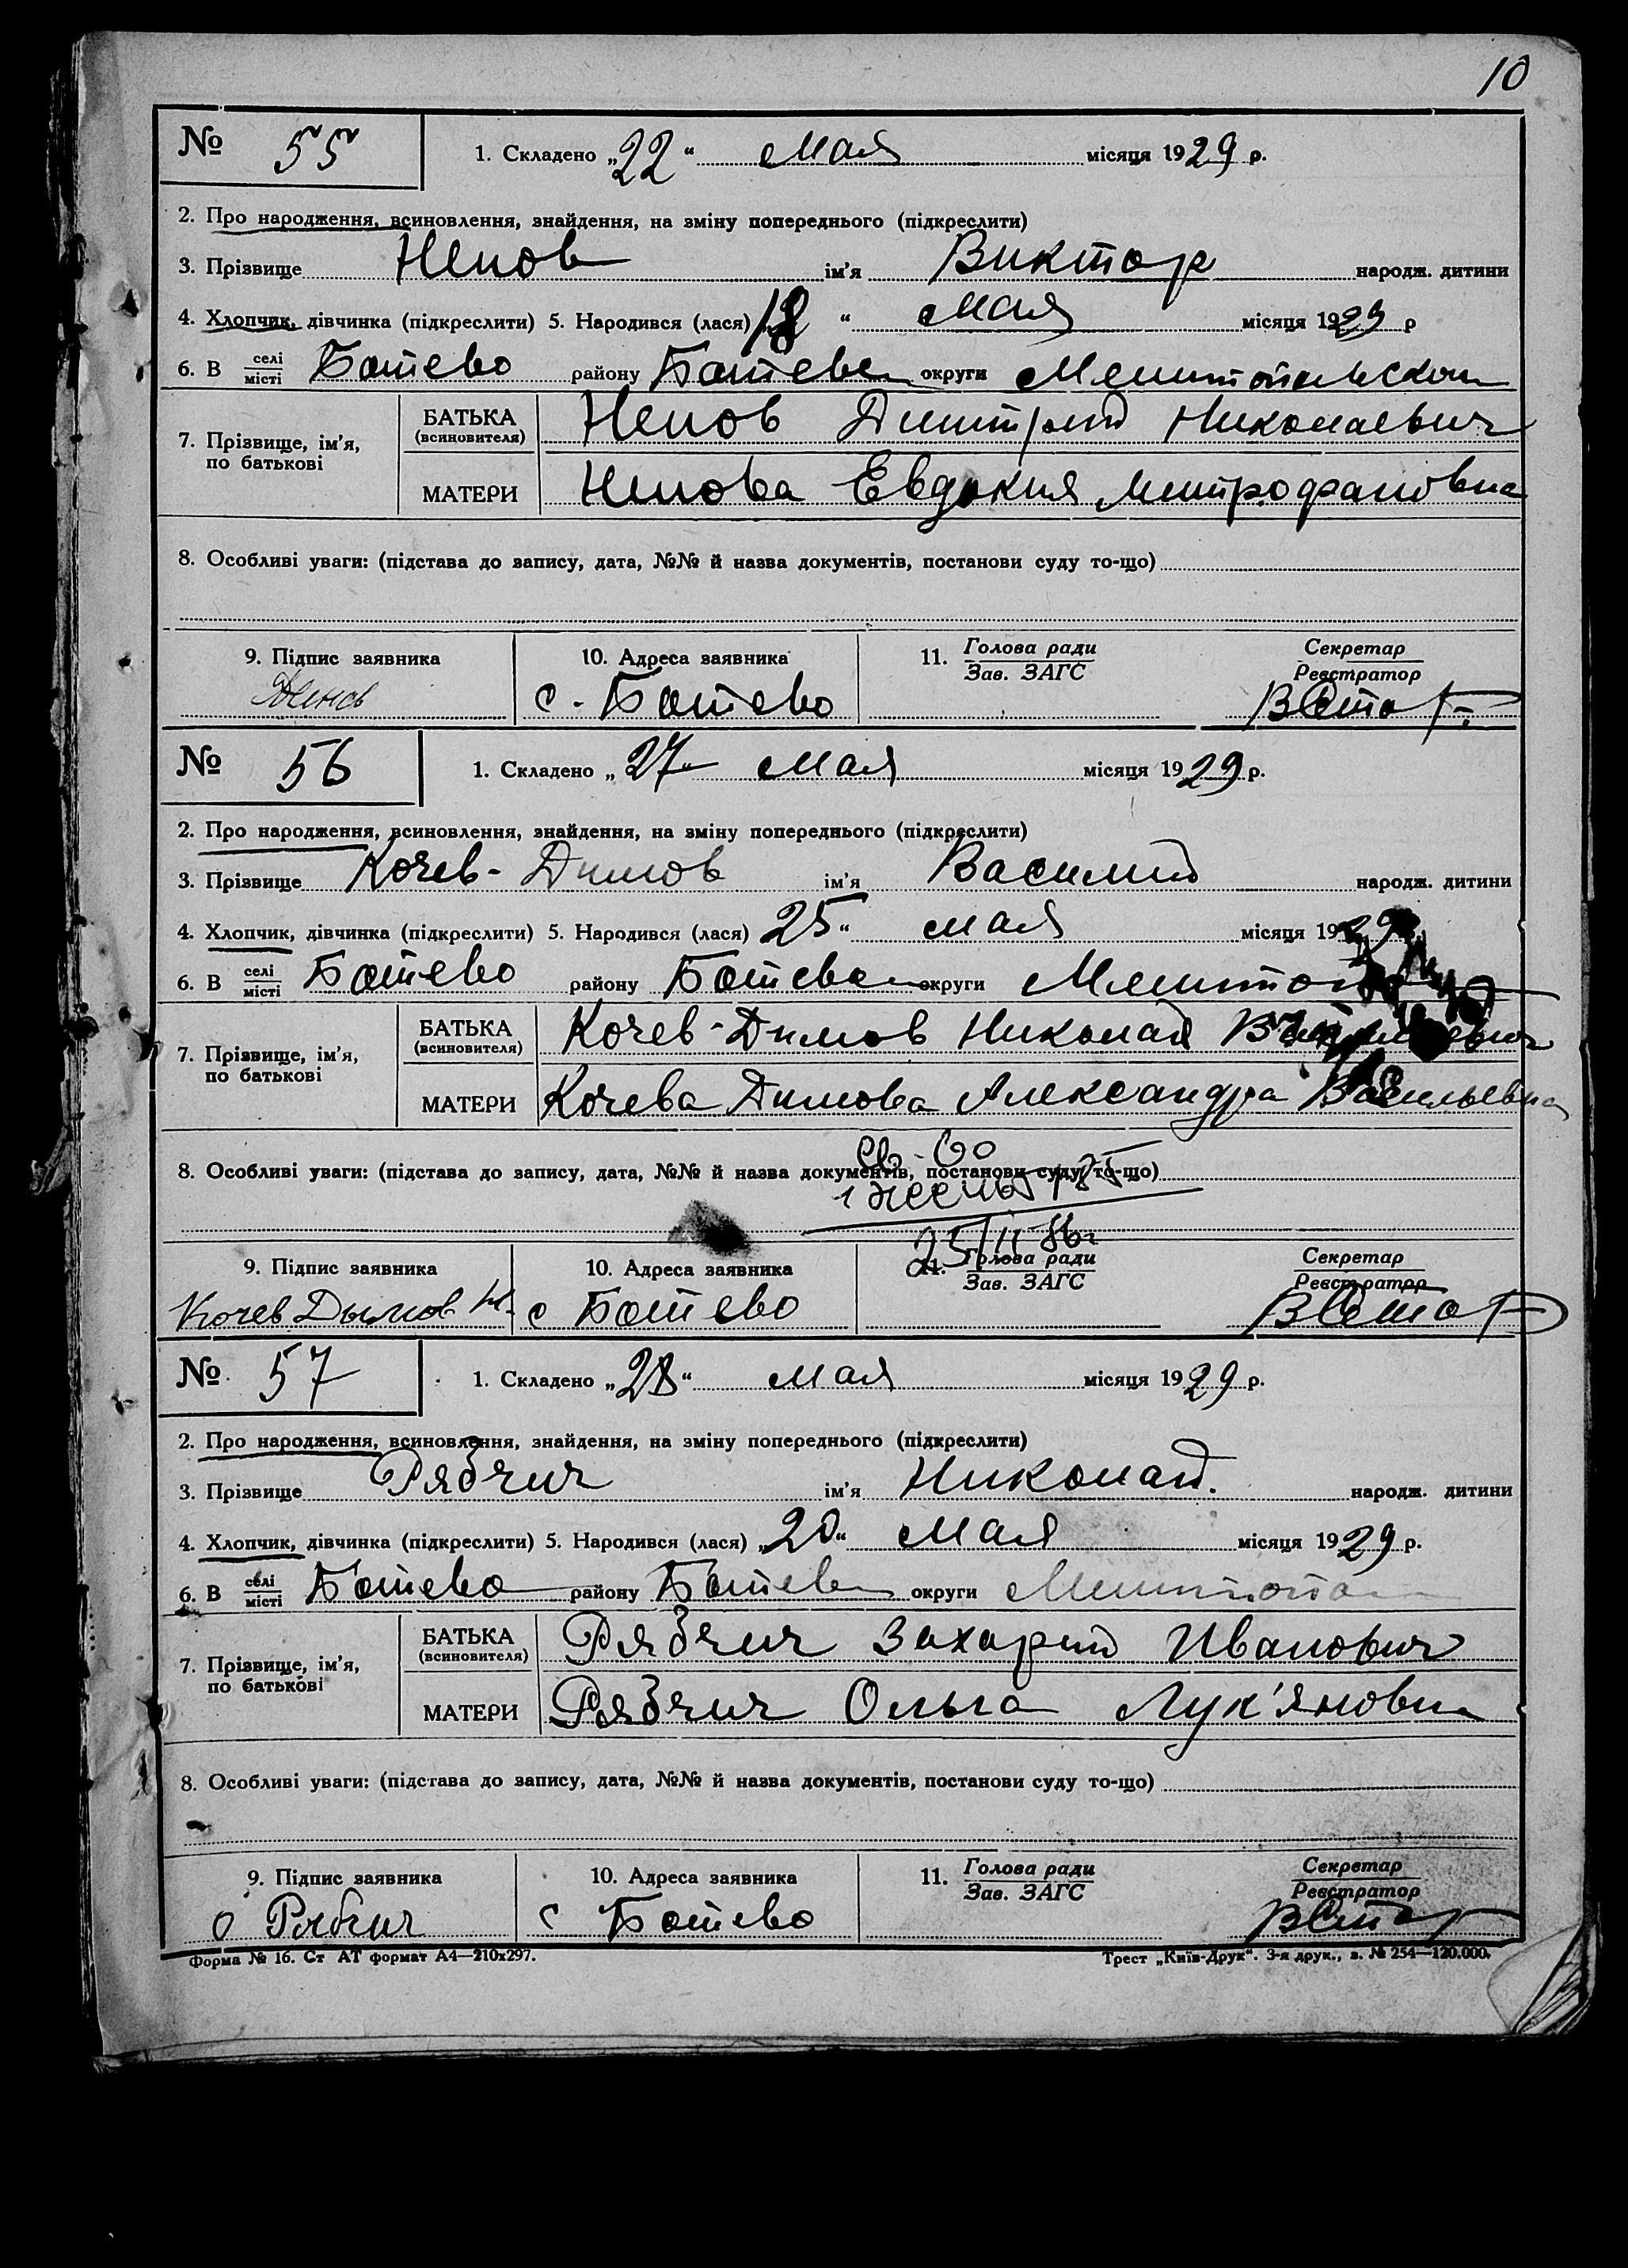 10
№ 55
1. Складено „22“ мая місяця 1929 р.
2. Про народження, всиновлення, знайдення, на зміну попереднього (підкреслити)
3. Прізвище Ненов ім'я Виктор народж. дитини
4. Хлопчик, дівчинка (підкреслити) 5. Народився (лася) 18 “ мая місяця 1929 р
6. В селі/місті Ботево району Ботевск округи Мелитопольской
7. Прізвище, ім'я, по батькові
БАТЬКА (всиновителя) Ненов Димитрий Николаевич
МАТЕРИ Ненова Евдокия Митрофановна
8. Особливі уваги: (підстава до запису, дата, №№ й назва документів, постанови суду то-що)
9. Підпис заявника 10. Адреса заявника 11. Голова ради/Зав. ЗАГС Секретар/Реєстратор
Ненов с. Ботево
№ 56
1. Складено „27“ мая місяця 1929 р.
2. Про народження, всиновлення, знайдення, на зміну попереднього (підкреслити)
3. Прізвище Кочев-Димов ім'я Василий народж. дитини
4. Хлопчик, дівчинка (підкреслити) 5. Народився (лася) 25“ мая місяця 1929
6. В селі/місті Ботево району Ботевск округи Мелитоп
7. Прізвище, ім'я, по батькові
БАТЬКА (всиновителя) Кочев-Димов Николай
МАТЕРИ Кочева Димова Александра Васильевна
8. Особливі уваги: (підстава до запису, дата, №№ й назва документів, постанови суду то-що)
9. Підпис заявника 10. Адреса заявника 11. Голова ради/Зав. ЗАГС Секретар/Реєстратор
Кочев Дымов Н. с Ботево
№ 57
1. Складено „28“ мая місяця 1929 р.
2. Про народження, всиновлення, знайдення, на зміну попереднього (підкреслити)
3. Прізвище Рябчич ім'я Николай. народж. дитини
4. Хлопчик, дівчинка (підкреслити) 5. Народився (лася) „20“ мая місяця 1929 р.
6. В селі/місті Ботево району Ботевск округи Мелитопол
7. Прізвище, ім'я, по батькові
БАТЬКА (всиновителя) Рябчич Захарий Иванович
МАТЕРИ Рябчич Ольга Лук'яновна
8. Особливі уваги: (підстава до запису, дата, №№ й назва документів, постанови суду то-що)
9. Підпис заявника 10. Адреса заявника 11. Голова ради/Зав. ЗАГС Секретар/Реєстратор
Рябчич с Ботево
Форма № 16. Ст АТ формат А4—210х297. Трест „Київ-Друк“. 3-я друк., з. № 254—120.000.